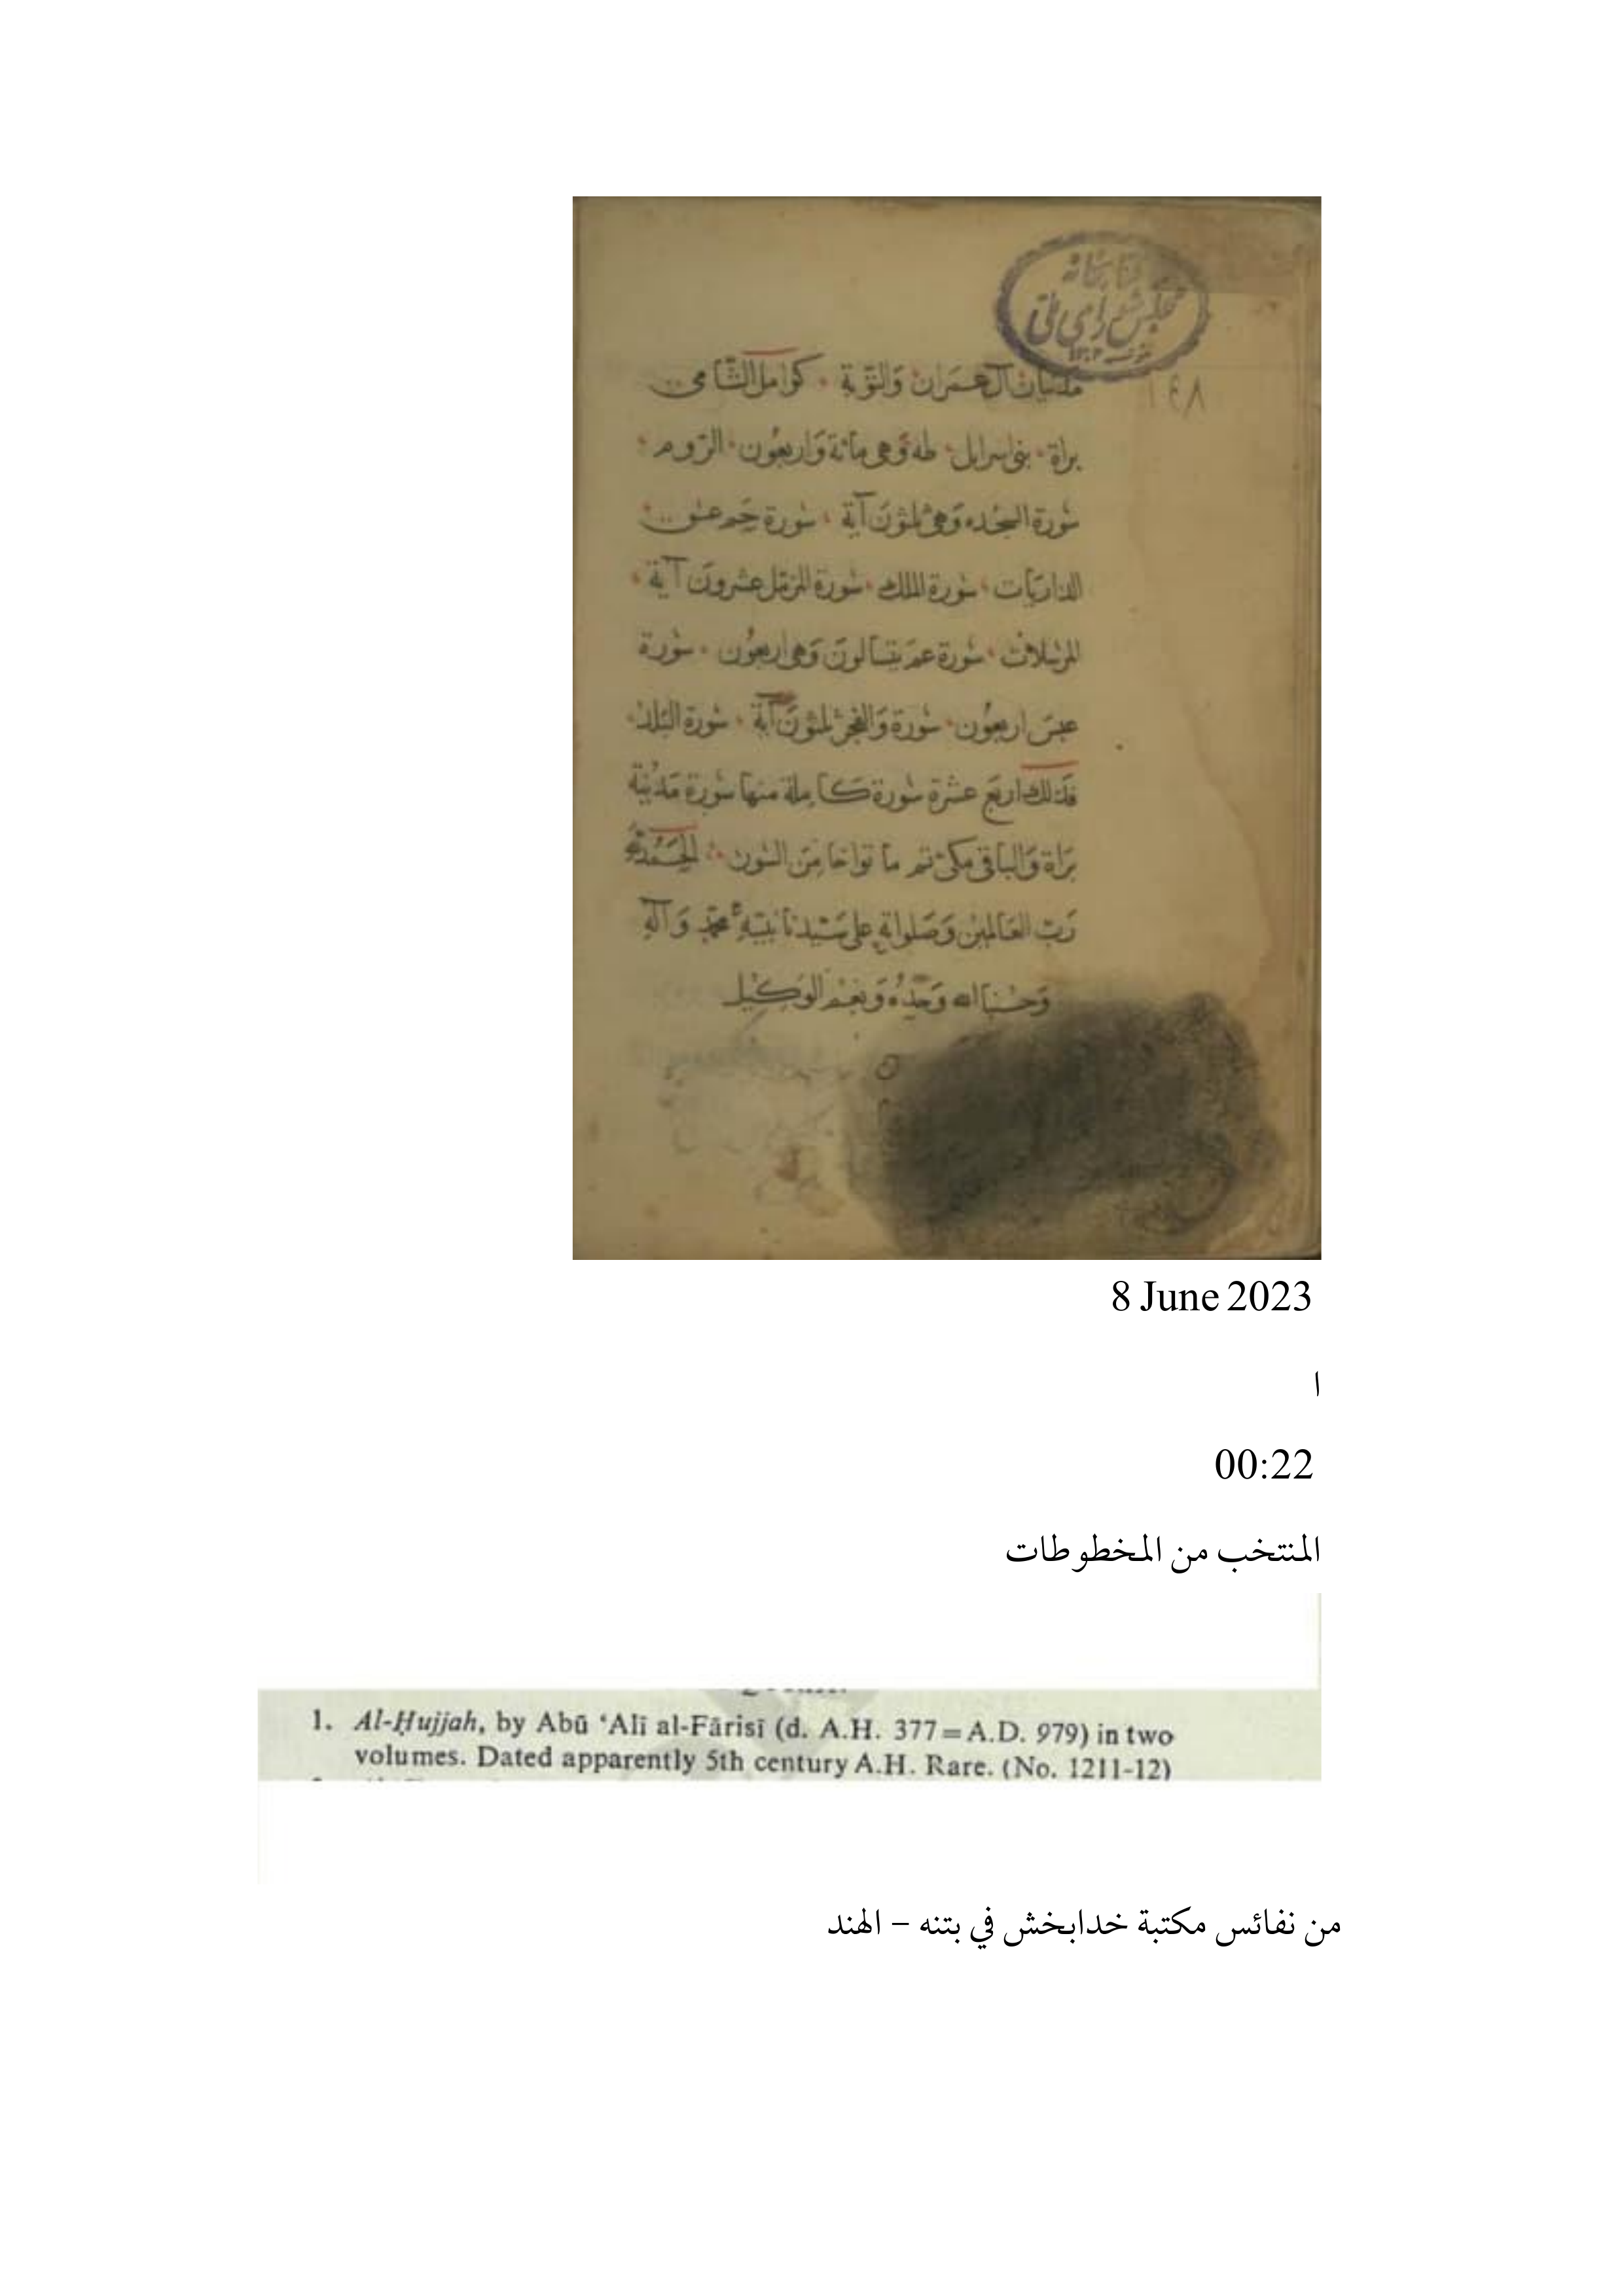 كتابخانه
مجلس شورای ملی
١٤٨
مدنيتان آل عمران والتوبة كوامل الشامي
براة بنى اسرايل طه وهي مائة واربعون الروم
سورة السجده وهي ثلثون آية سورة حم عسق
الذاريات سورة الملك سورة المزمل عشرون آية
المرسلات سورة عم يتسألون وهي اربعون سورة
عبس اربعون سورة والفجر ثلثون آية سورة البلد
فذلك اربع عشرة سورة كاملة منها سورة مدنية
براة والباقي مكي تم ما تواخا من السور الحمد لله
رب العالمين وصلواته على سيدنا نبيه محمد وآله
وحسبنا الله وحده ونعم الوكيل
8 June 2023
ا
00:22
المنتخب من المخطوطات
1. Al-Ḥujjah, by Abū ‘Alī al-Fārisī (d. A.H. 377=A.D. 979) in two
volumes. Dated apparently 5th century A.H. Rare. (No. 1211-12)
من نفائس مكتبة خدابخش في بتنه – الهند